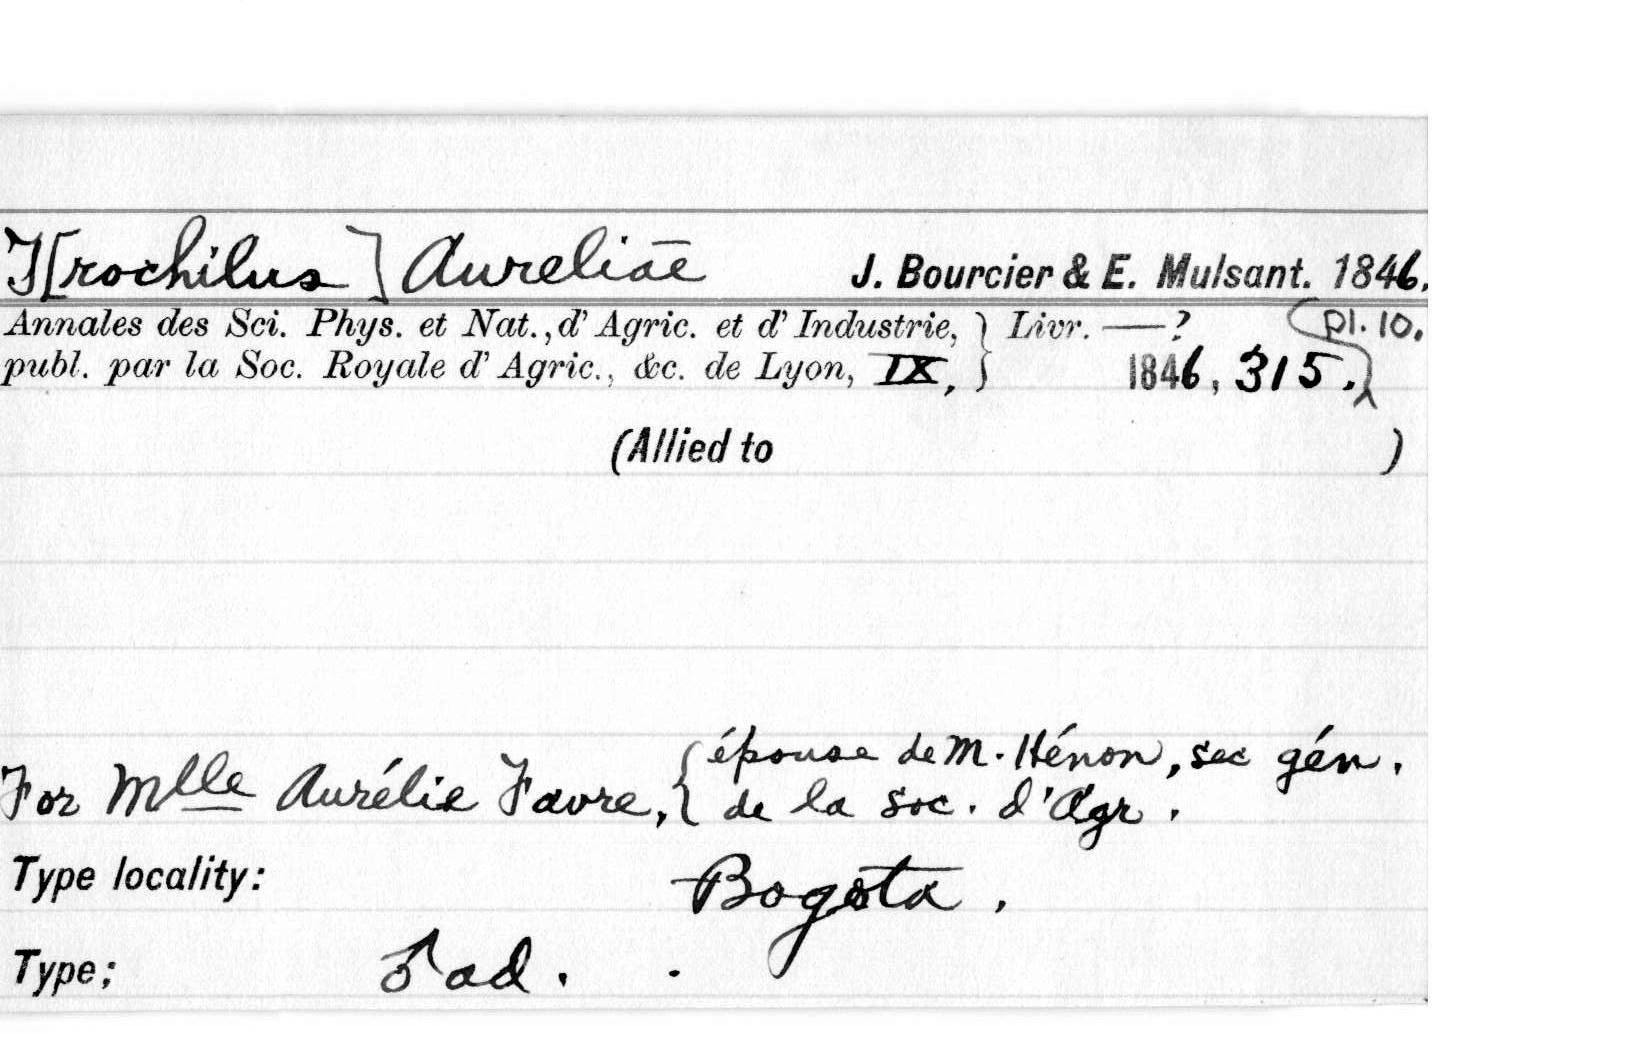 T[rochilus] Aureliae J. Bourcier & E. Mulsant. 1846.
Annales des Sci. Phys. et Nat., d' Agric. et d' Industrie, } Livr. —? pl. 10.
publ. par la Soc. Royale d' Agric., &c. de Lyon, IX, } 1846, 315.
(Allied to )
For Mlle Aurélie Favre, { épouse de M. Hénon, sec gén.
de la soc. d'Agr.
Type locality: Bogota.
Type; ♂ ad. .